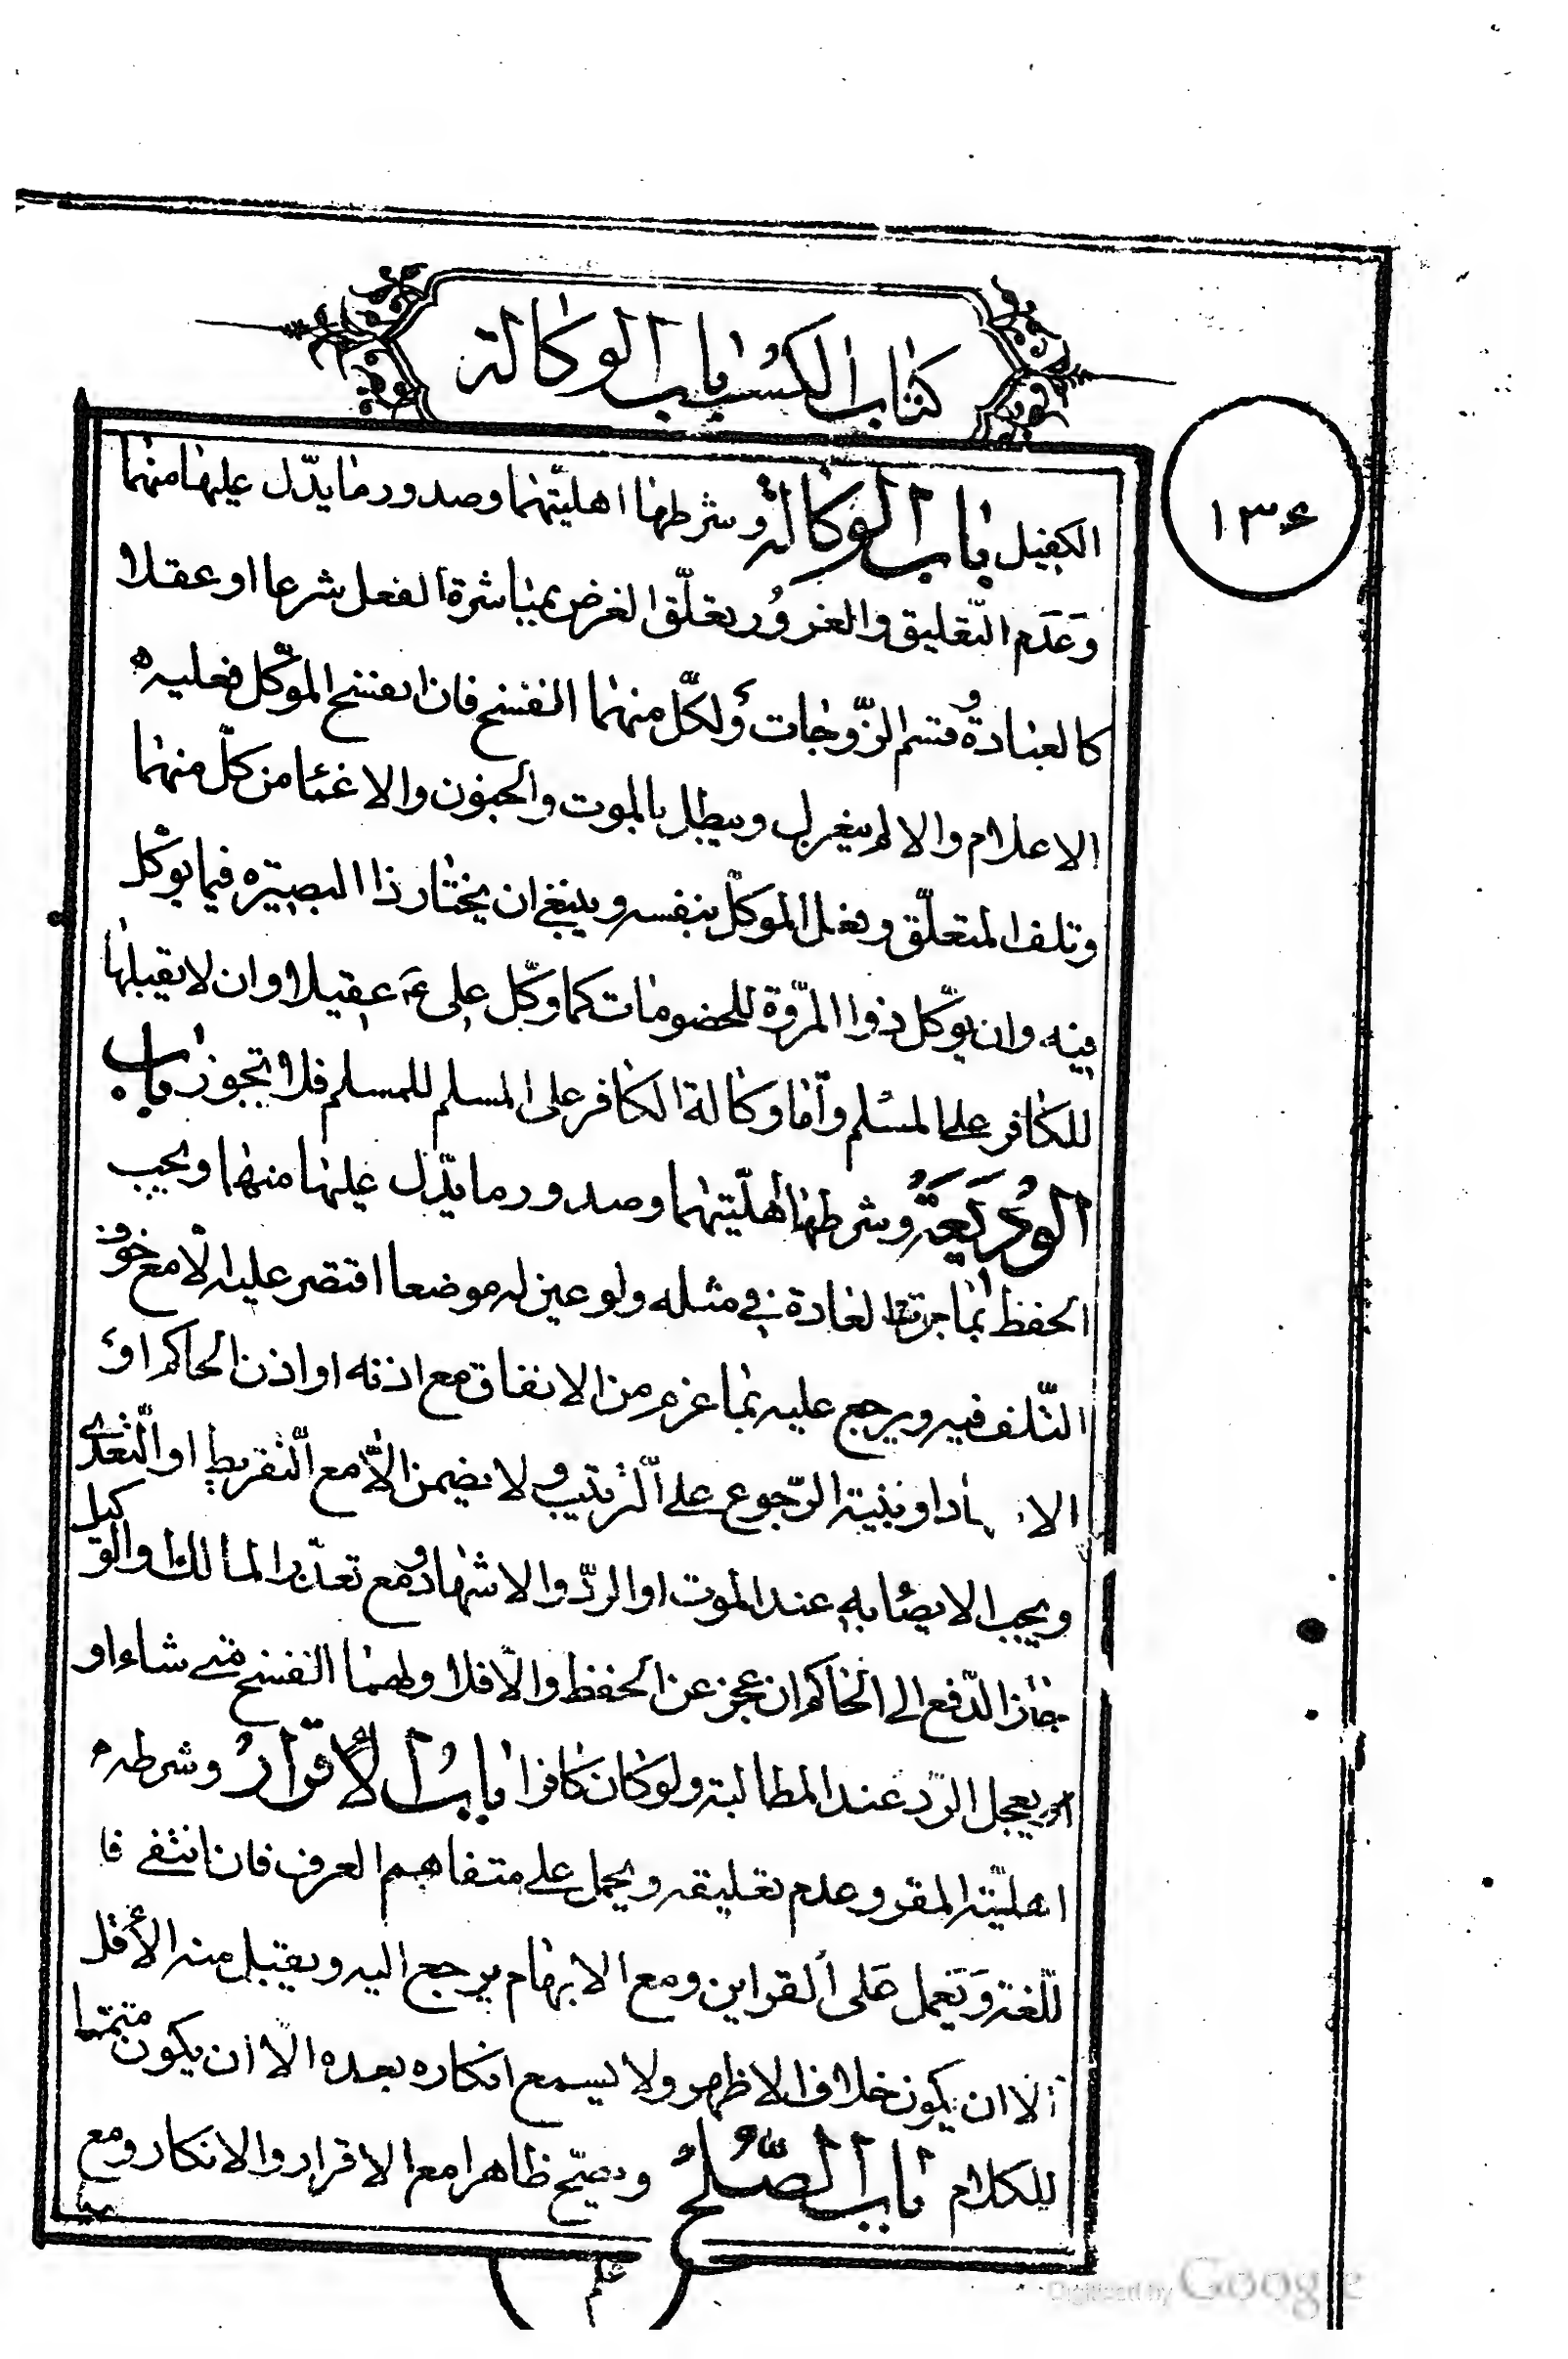 كتاب الكسب باب الوكالة
١٣۶
الكفيل باب الوكالة وشرطها اهليّتهما وصدور ما يدّل عليها منهما
وَعَدَم التّعليق والغرور وتعلّق الغرض بمباشرة الفعل شرعا او عقلا
كالعبادة وقسم الزّوجات ولكلّ منهما الفسخ فان انفسخ الموّكل فعليه
الاعلام والا لم ينعزل ويبطل بالموت والجنون والاغماء من كلّ منهما
وتلف المتعلّق وفعل الموكّل بنفسه وينبغي ان يختار ذا البصيرة فيما يوكّل
فيه وان يوكّل ذوا المرّوة للخصومات كما وكّل علي ع عقيلا وان لا يقبلها
للكافر على المسلم وأمّا وكالة الكافر على المسلم للمسلم فلا تجوز باب
الوديعة وشرطها أهليّتهما وصدور ما يدّل عليها منهما ويجب
الحفظ بما جرت العادة في مثله ولو عيّن له موضعا اقتصر عليه الّا مع خوف
التّلف فيه ويرجع عليه بما غرم من الانفاق مع اذنه او اذن الحاكم او
الا اد او بنيّة الرّجوع على التّرتيب ولا يضمن الّا مع التّفريط او التّعدى
ويجب الايصاء به عند الموت او الردّ والاشهاد ومع تعذّر المالك والوكيل
جاز الدّفع الى الحاكم ان عجز عن الحفظ والّا فلا ولهما الفسخ متى شاءا و
يعجل الرّد عند المطالبة ولو كان كافرا باب الأقرار وشرطه
اهليّة المقر وعدم تعليقه ويحمل على متفاهم العرف فان انتفى فا
للّغة وَيَعمل على القراين ومع الابهام يرجع اليه ويقبل منه الأقل
الّا ان يكون خلاف الاظهر ولا يسمع انكاره بعده الّا ان يكون متمّما
للكلام باب الصّلح ويصحّ ظاهرا مع الاقرار والانكار ومع
علم
Digitized by Google